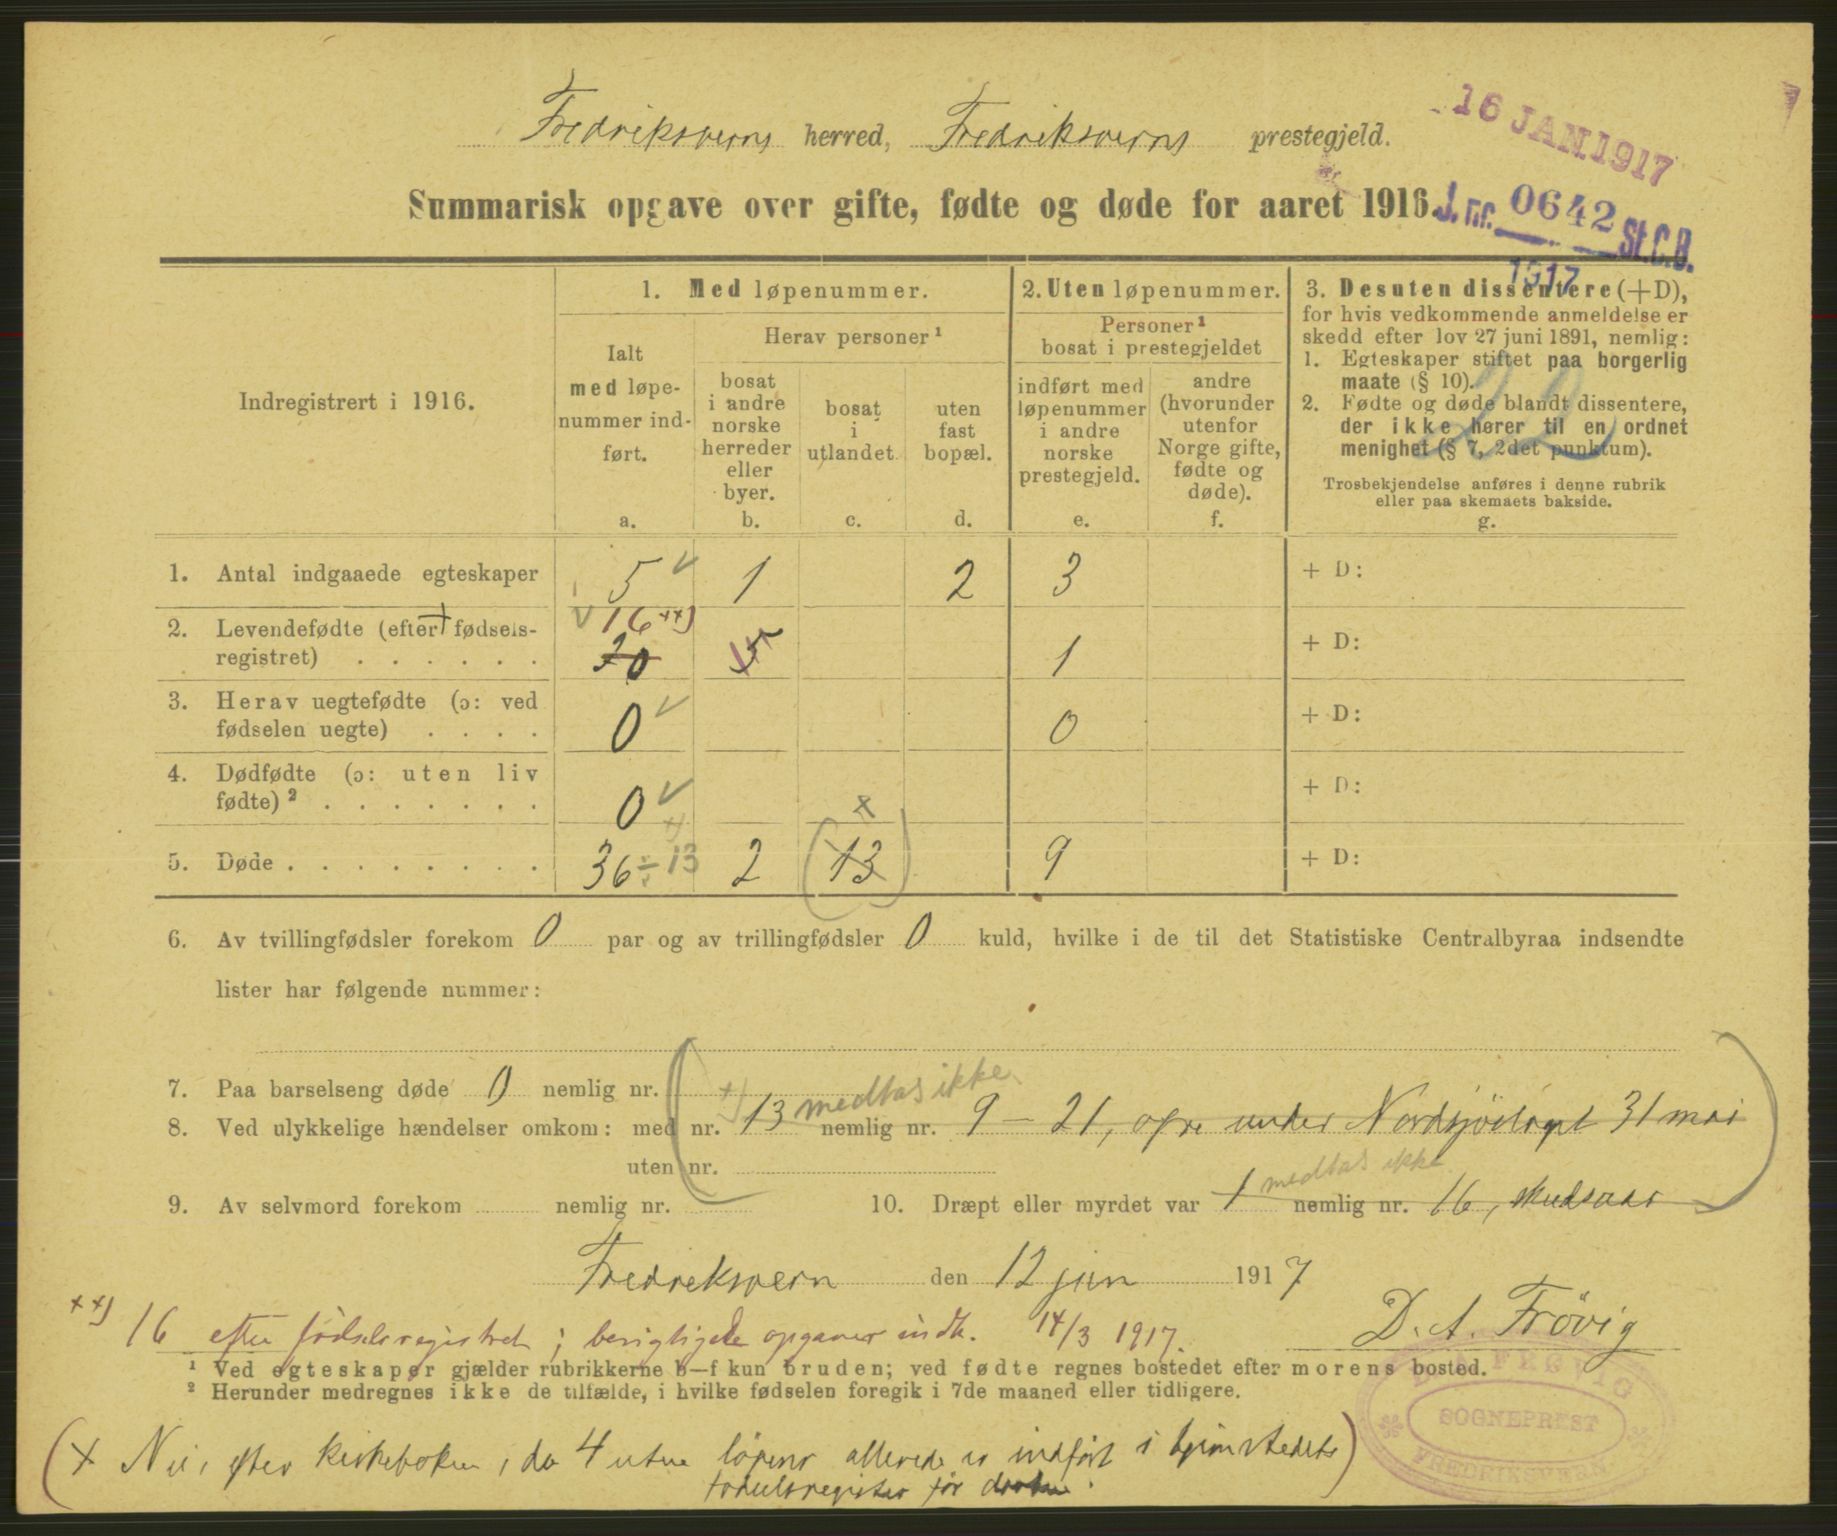 Fredriksverns herred, Fredriksverns prestegjeld.
16 JAN. 1917
Summarisk opgave over gifte, fødte og døde for aaret 1916.
J. nr. 0642 St.C.B.
1917
Indregistrert i 1916.
1. Med løpenummer.
Ialt med løpenummer indført.
a.
Herav personer ¹
bosat i andre norske herreder eller byer.
b.
bosat i utlandet.
c.
uten fast bopæl.
d.
2. Uten løpenummer.
Personer ¹ bosat i prestegjeldet
indført med løpenummer i andre norske prestegjeld.
e.
andre (hvorunder utenfor Norge gifte, fødte og døde).
f.
3. Desuten dissentere (+D),
for hvis vedkommende anmeldelse er
skedd efter lov 27 juni 1891, nemlig:
1. Egteskaper stiftet paa borgerlig
maate (§ 10).
2. Fødte og døde blandt dissentere,
der ikke hører til en ordnet
menighet (§ 7, 2det punktum).
22
Trosbekjendelse anføres i denne rubrik
eller paa skemaets bakside.
g.
1. Antal indgaaede egteskaper 5 √ 1 2 3 + D:
√ 16 ××)
2. Levendefødte (efter + fødsels-
registret) . . . . . . 20 5 1 + D:
3. Herav uegtefødte (ɔ: ved
fødselen uegte) . . . . 0 √ 0 + D:
4. Dødfødte (ɔ: uten liv
fødte) ² . . . . . . . 0 √ + D:
×) ×
5. Døde . . . . . . . . 36 ÷ 13 2 (13) 9 + D:
6. Av tvillingfødsler forekom 0 par og av trillingfødsler 0 kuld, hvilke i de til det Statistiske Centralbyraa indsendte
lister har følgende nummer:
7. Paa barselseng døde 0 nemlig nr.
×) medtas ikke
8. Ved ulykkelige hændelser omkom: med nr. 13 nemlig nr. 9 – 21, under Nordsjöslaget 31 mai
uten nr.
medtas ikke
9. Av selvmord forekom nemlig nr. 10. Dræpt eller myrdet var 1 nemlig nr. 16, skudsaar
Fredriksvern den 12 jan 1917
D. A. Frövig
××) 16 efter fødselsregistret; berigtigede opgaver indk. 14/3 1917.
¹ Ved egteskaper gjælder rubrikkerne b–f kun bruden; ved fødte regnes bostedet efter morens bosted.
² Herunder medregnes ikke de tilfælde, i hvilke fødselen foregik i 7de maaned eller tidligere.
SOGNEPREST
FREDRIKSVERN
(+ efter kirkeboken, da 4 uten löpenr allerede er indfört i hjemstedets)